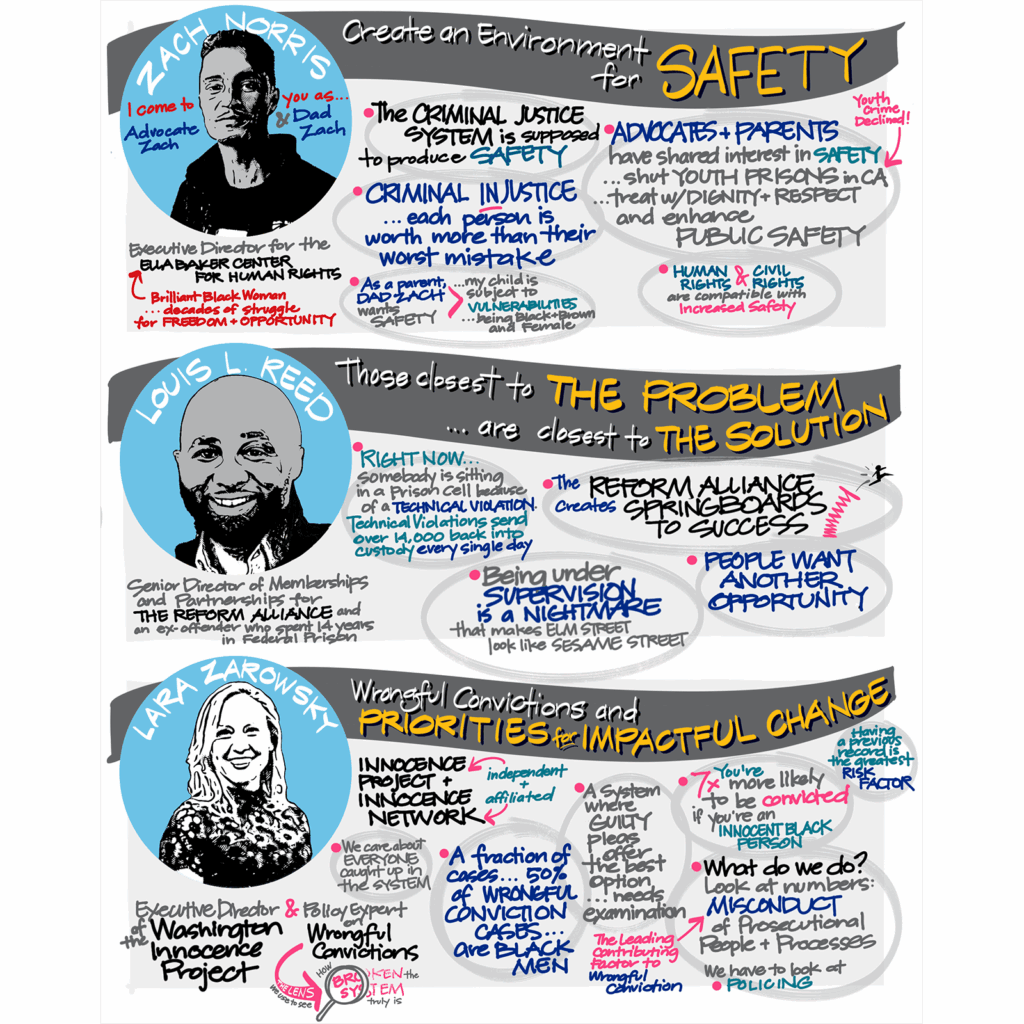 ZACH NORRIS
Create an Environment
for SAFETY
I come to
you as...
Advocate
Zach
& Dad
Zach
Executive Director for the
ELLA BAKER CENTER
FOR HUMAN RIGHTS
Brilliant Black Woman
... decades of struggle
for FREEDOM + OPPORTUNITY
• The CRIMINAL JUSTICE
SYSTEM is supposed
to produce SAFETY
• CRIMINAL INJUSTICE
... each person is
worth more than their
worst mistake
• As a parent,
DAD ZACH
wants
SAFETY
...my child is
subject to
VULNERABILITIES
...being Black + Brown
and Female
Youth
Crime
Declined!
• ADVOCATES + PARENTS
have shared interest in SAFETY
...shut YOUTH PRISONS in CA
...treat w/DIGNITY + RESPECT
and enhance
PUBLIC SAFETY
• HUMAN RIGHTS & CIVIL RIGHTS
are compatible with
Increased Safety
LOUIS L. REED
Those closest to THE PROBLEM
... are closest to THE SOLUTION
Senior Director of Memberships
and Partnerships for
THE REFORM ALLIANCE and
an ex-offender who spent 14 years
in Federal Prison
• RIGHT NOW...
somebody is sitting
in a Prison Cell because
of a TECHNICAL VIOLATION.
Technical Violations send
over 14,000 back into
custody every single day
• The REFORM ALLIANCE
Creates SPRINGBOARDS
TO SUCCESS
• Being under
SUPERVISION
is a NIGHTMARE
that makes ELM STREET
look like SESAME STREET
• PEOPLE WANT
ANOTHER
OPPORTUNITY
LARA ZAROWSKY
Wrongful Convictions and
PRIORITIES for IMPACTFUL CHANGE
Executive Director
of the Washington
Innocence
Project
& Policy Expert
on
Wrongful
Convictions
THE LENS
we use to see
HOW
BROKEN the
SYSTEM
truly is
INNOCENCE
PROJECT +
INNOCENCE
NETWORK
independent
+
affiliated
• We care about
EVERYONE
caught up in
the SYSTEM
• A fraction of
cases... 50%
of WRONGFUL
CONVICTION
CASES...
are BLACK
MEN
• A System
where
GUILTY
pleas
offer
the best
option
... needs
examination
• 7x You're
more likely
to be convicted
if you're an
INNOCENT BLACK
PERSON
Having
a previous
record is
the greatest
RISK
FACTOR
• What do we do?
Look at numbers:
MISCONDUCT
of Prosecutional
People + Processes
The Leading
Contributing
Factor to
Wrongful
Conviction
We have to look at
• POLICING